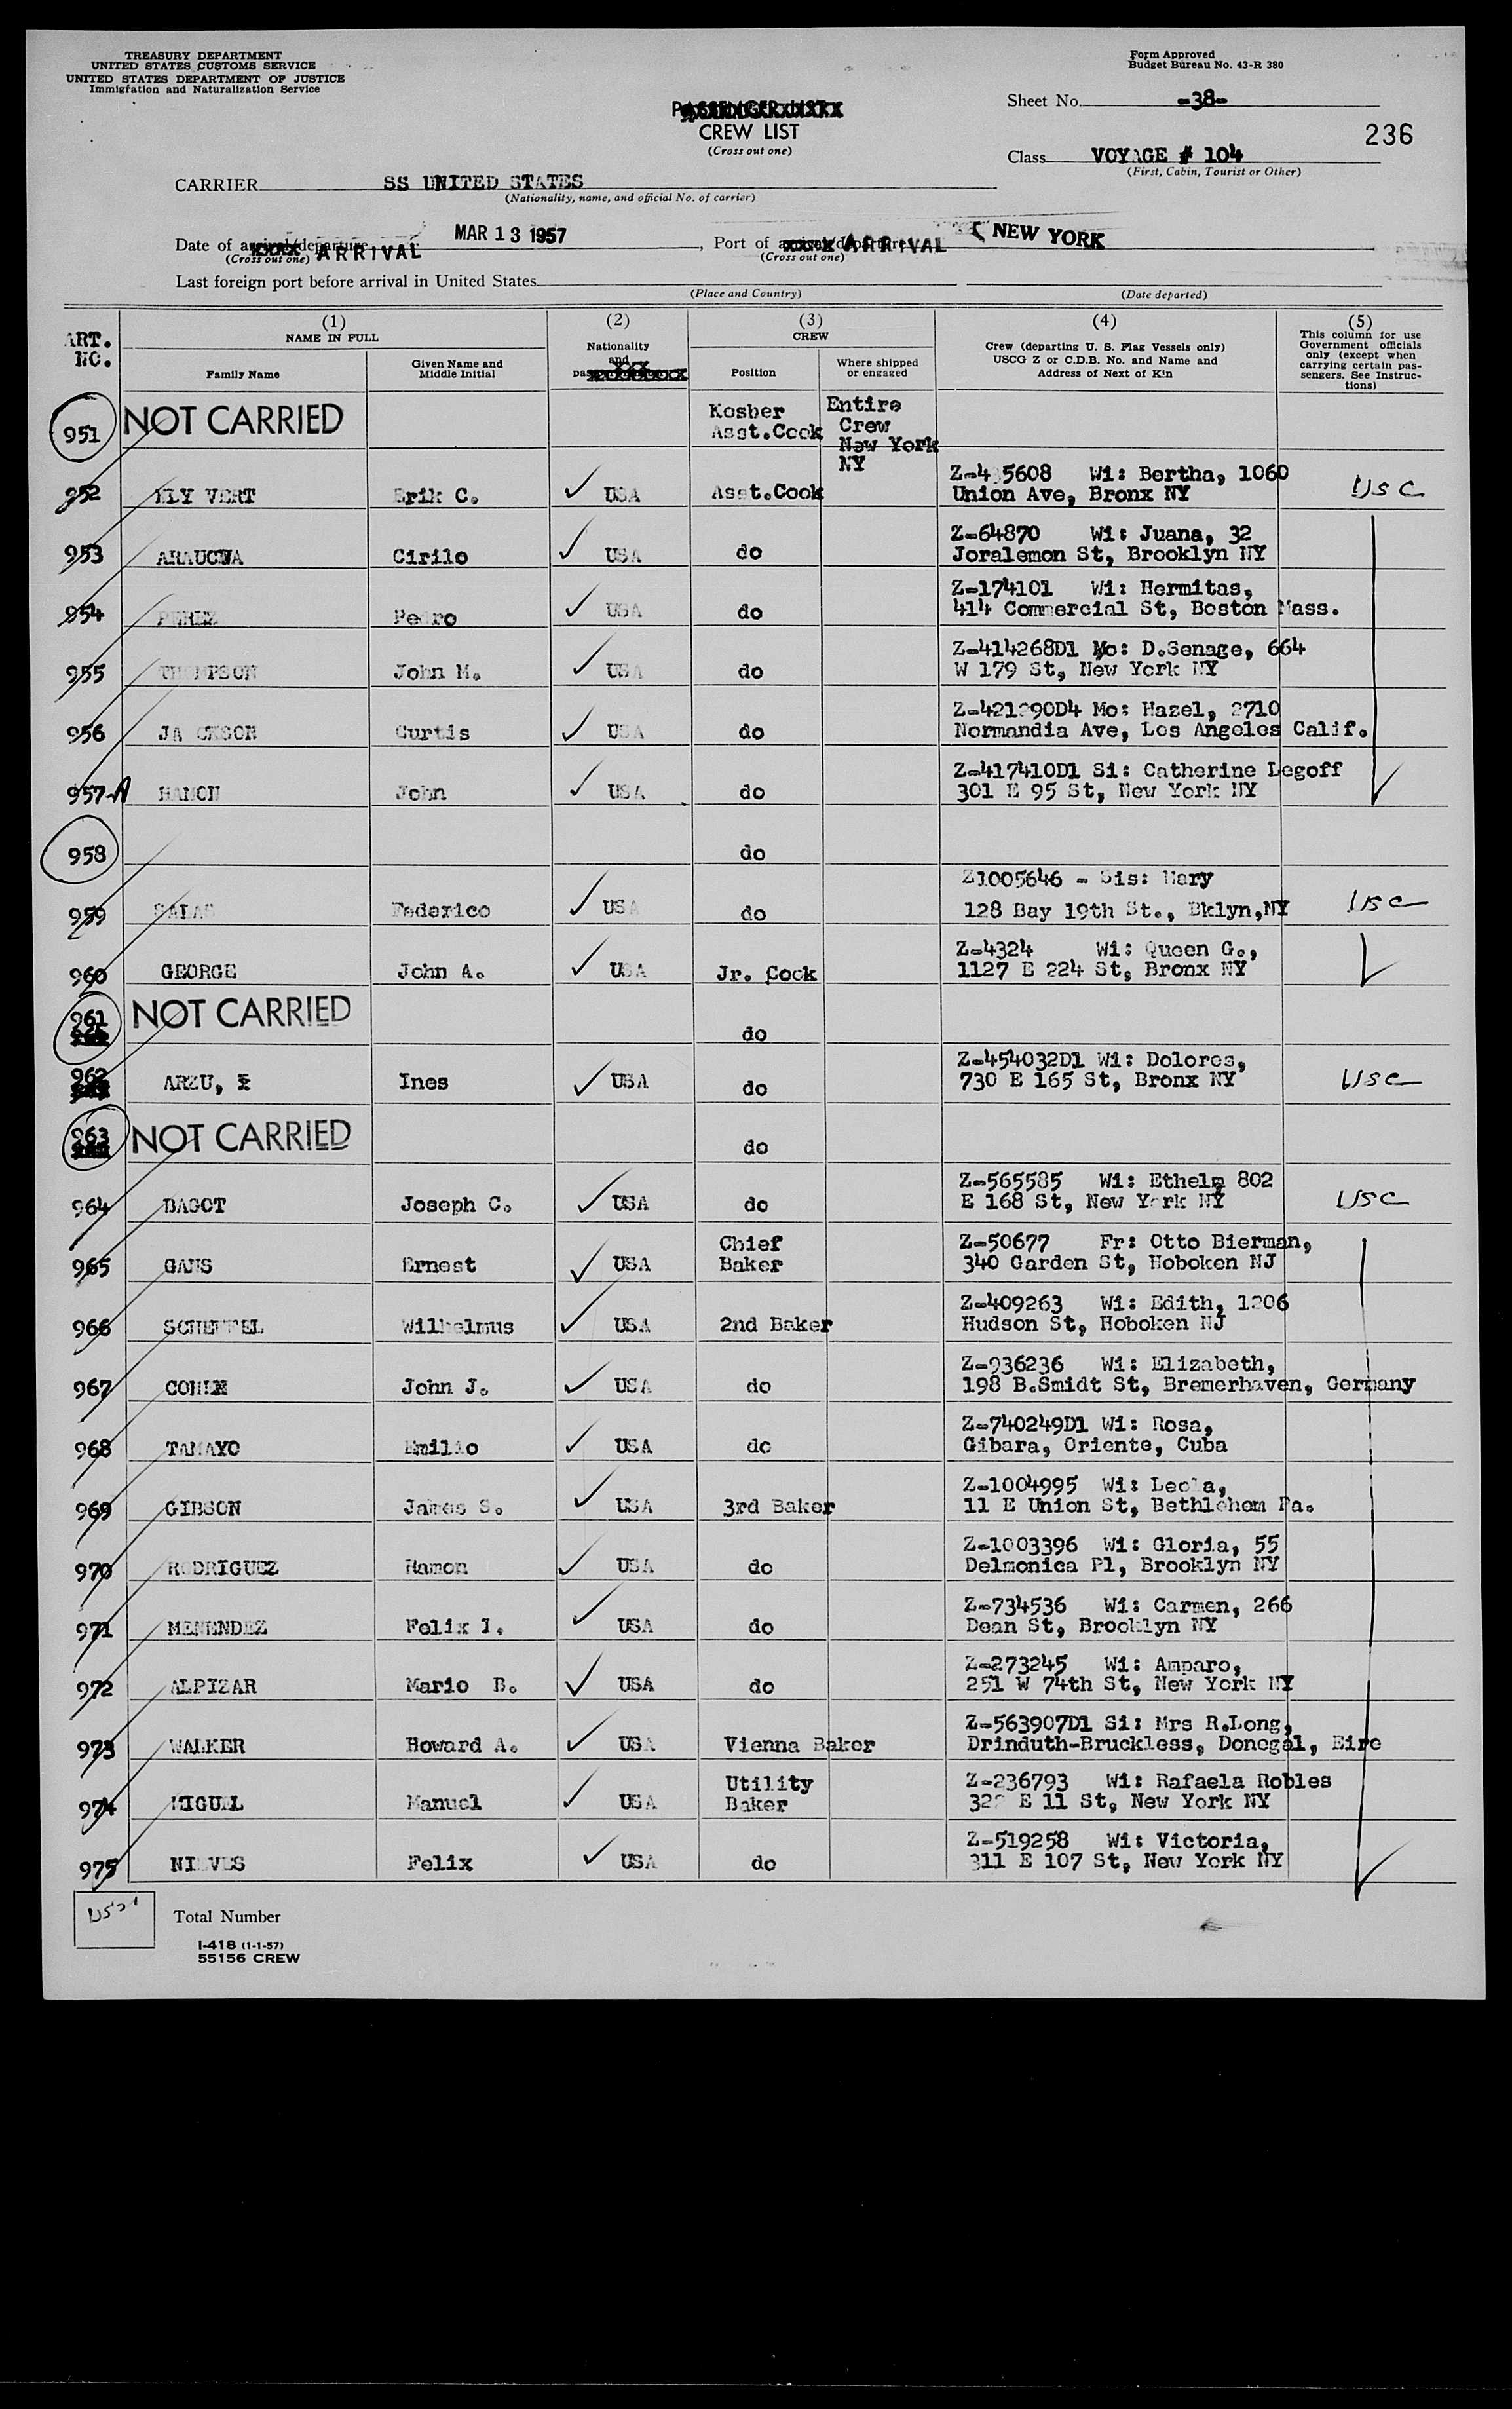 TREASURY DEPARTMENT
UNITED STATES CUSTOMS SERVICE
UNITED STATES DEPARTMENT OF JUSTICE
Immigration and Naturalization Service
Form Approved
Budget Bureau No. 43-R 380
Sheet No. -38-
PASSENGER LIST
CREW LIST
(Cross out one)
236
Class VOYAGE # 104
(First, Cabin, Tourist or Other)
CARRIER SS UNITED STATES
(Nationality, name, and official No. of carrier)
Date of arrival/departure ARRIVAL MAR 13 1957, Port of arrival/departure ARRIVAL NEW YORK
(Cross out one) (Cross out one)
Last foreign port before arrival in United States
(Place and Country) (Date departed)
ART. NO.
(1) NAME IN FULL
Family Name
Given Name and Middle Initial
(2) Nationality and
(3) CREW
Position
Where shipped or engaged
(4) Crew (departing U. S. Flag Vessels only) USCG Z or C.D.B. No. and Name and Address of Next of Kin
(5) This column for use Government officials only (except when carrying certain passengers. See Instructions)
951 NOT CARRIED Kosher Asst.Cook Entire Crew New York NY
952 ELY VERT Erik C. USA Asst.Cook Wi: Bertha, 1060 USC
Union Ave, Bronx NY
953 Cirilo USA do Z-64870 Wi: Juana, 32
Joralemon St, Brooklyn NY
954 PEREZ Pedro USA do Z-174101 Wi: Hermitas,
414 Commercial St, Boston Mass.
955 THOMPSON John M. USA do Z-414268D1 Mo: D.Senage, 664
W 179 St, New York NY
956 JACKSON Curtis USA do Mo: Hazel, 2710
Normandia Ave, Los Angeles Calif.
957-A HAMON John USA do Z-417410D1 Si: Catherine Legoff
301 E 95 St, New York NY
958 do
959 SALAS Federico USA do Z1005646 - Sis: Mary USC
128 Bay 19th St., Bklyn,NY
960 GEORGE John A. USA Jr. Cook Z-4324 Wi: Queen G.,
1127 E 224 St, Bronx NY
961 NOT CARRIED do
962 ARZU, Ines USA do Z-454032D1 Wi: Dolores, USC
730 E 165 St, Bronx NY
963 NOT CARRIED do
964 BAGOT Joseph C. USA do Z-565585 Wi: Ethel 802 USC
E 168 St, New York NY
965 GANS Ernest USA Chief Baker Z-50677 Fr: Otto Bierman,
340 Garden St, Hoboken NJ
966 Wilhelmus USA 2nd Baker Z-409263 Wi: Edith, 1206
Hudson St, Hoboken NJ
967 John J. USA do Z-936236 Wi: Elizabeth,
198 B.Smidt St, Bremerhaven, Germany
968 TAMAYO Emilio USA do Z-740249D1 Wi: Rosa,
Gibara, Oriente, Cuba
969 GIBSON James S. USA 3rd Baker Z-1004995 Wi: Leola,
11 E Union St, Bethlehem Pa.
970 RODRIGUEZ Ramon USA do Z-1003396 Wi: Gloria, 55
Delmonica Pl, Brooklyn NY
971 MENENDEZ Felix I. USA do Z-734536 Wi: Carmen, 266
Dean St, Brooklyn NY
972 ALPIZAR Mario B. USA do Z-273245 Wi: Amparo,
251 W 74th St, New York NY
973 WALKER Howard A. USA Vienna Baker Z-563907D1 Si: Mrs R.Long,
Drinduth-Bruckless, Donegal, Eire
974 MIGUEL Manuel USA Utility Baker Z-236793 Wi: Rafaela Robles
E 11 St, New York NY
975 NIEVES Felix USA do Z-519258 Wi: Victoria,
311 E 107 St, New York NY
Total Number
I-418 (1-1-57)
55156 CREW